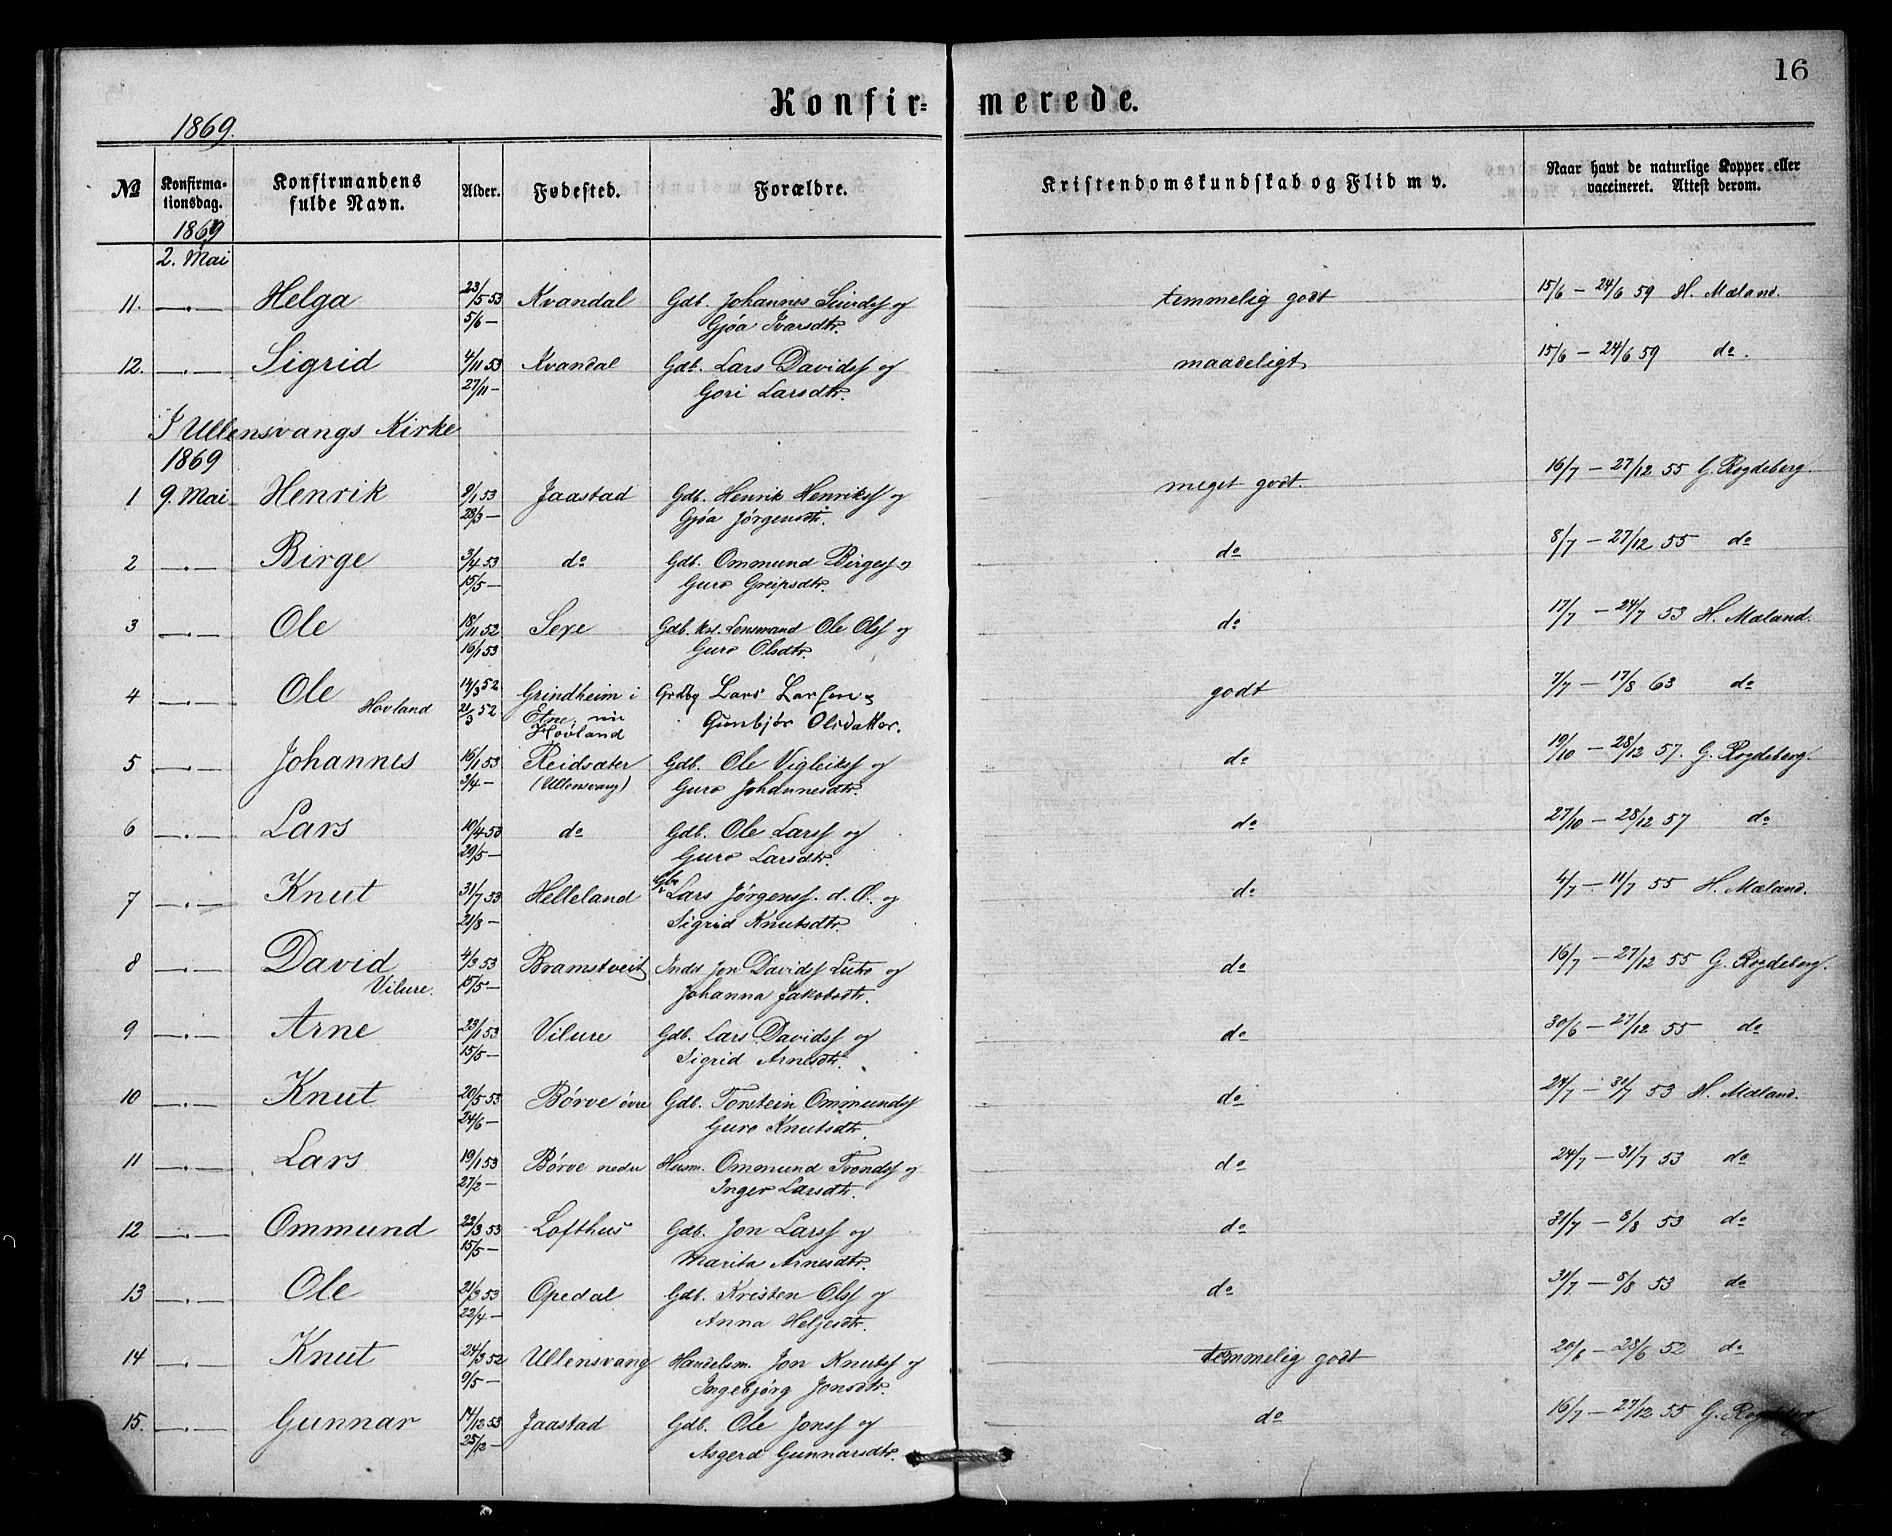 16
Konfir= merede.
1869.
No Konfirma-tionsdag. Konfirmandens fulde Navn. Alder. Fødested. Forældre. Kristendomskundskab og Flid m v. Naar havt de naturlige Kopper eller vaccineret. Attest derom.
1869
2. Mai
11. —.— Helga 23/5 53 Kvandal Gdb. Johannes Sivrdsf og temmelig godt 15/6 — 24/6 59 H. Mæland.
5/6 — Gjøa Ivarsdtr.
12. —.— Sigrid 4/11 53 Kvandal Gdb. Lars Davidsf og maadeligt 15/6 — 24/6 59 do.
27/11 — Gori Larsdtr.
I Ullensvangs Kirke
1869
1 9. Mai Henrik 9/1 53 Jaastad Gdb. Henrik Henriksf og meget godt. 16/7 — 27/12 55 G. Rogdeberg.
28/3 — Gjøa Jørgensdtr.
2 —.— Birge 3/4 53 do Gdb. Ommund Birgesf og do 8/7 — 27/12 55 do
15/5 — Guro Greipsdtr.
3 —.— Ole 18/11 52 Sexe Gdb. kst. Lensmand Ole Olsf og do 17/7 — 24/7 53 H. Mæland.
16/1 53 Guro Olsdtr.
4 —.— Ole 14/3 52 Grindheim i Grdbg Lars Larsen & godt 7/7 — 17/8 63 do
Hovland 21/3 52 Etne, nu Gunbjør Olsdatter.
Hovland
5 —.— Johannes 16/1 53 Reidsæter Gdb. Ole Vigleiksf og do 19/10 — 28/12 57. G. Rogdeberg.
3/4 — (Ullensvang) Guro Johannesdtr.
6 —.— Lars 10/4 53 do Gdb. Ole Larsf og do 27/10 — 28/12 57 do
29/5 — Guro Larsdtr.
7 —.— Knut 31/7 53 Helleland Gbr Lars Jørgensf. d. Æ. og do 4/7 — 11/7 55 H. Mæland.
21/8 — Sigrid Knutsdtr.
8 —.— David 4/3 53 Bramstveit Indst Jon Davidsf Lutro og do 16/7 — 27/12 55 G. Rogdeberg.
Vilure. 15/5 — Johanna Jakobsdtr.
9 —.— Arne 23/1 53 Vilure Gdb. Lars Davidsf og do 30/6 — 27/12 55 do
15/5 — Sigrid Arnesdtr.
10 —.— Knut 20/5 53 Børve øvre Gdb. Torstein Ommundsf do 24/7 — 31/7 53 H. Mæland.
24/6 — Guro Knutsdtr.
11 —.— Lars 19/1 53 Børve nedre Husm. Ommund Trondsf og do 24/7 — 31/7 53 do
27/2 — Inger Larsdtr.
12 —.— Ommund 22/3 53 Lofthus Gdb. Jon Larsf og do 31/7 — 8/8 53 do
15/5 — Marita Arnesdtr.
13 —.— Ole 21/3 53 Opedal Gdb. Kristen Olsf og do 31/7 — 8/8 53 do
22/4 — Anna Heljesdtr.
14 —.— Knut 24/3 52 Ullensvang Handelsm. Jon Knutsf og temmelig godt 20/6 — 28/6 52 do
9/5 — Ingebjørg Jonsdtr.
15. —.— Gunnar 14/12 53 Jaastad Gdb. Ole Jonsf og do 16/7 — 27/12 55 G. Rogdeberg
25/12 — Asgerd Gunnarsdtr.